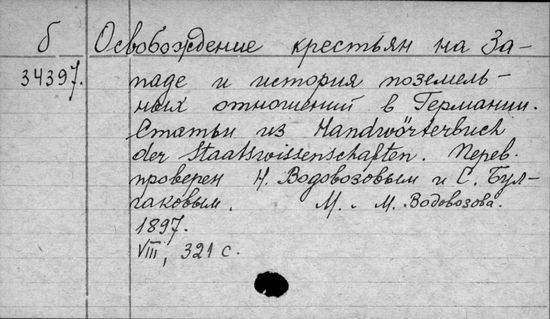 б Освобождение крестьян на За-
34397. паде и история поземель-
ных отношений в Германии.
Статьи из Handwörterbuch
der Staatswissenschaften. Перев.
проверен Н. Водовозовым и С. Бул-
гаковым. М. М. Водовозова.
1897.
VIII, 321 с.